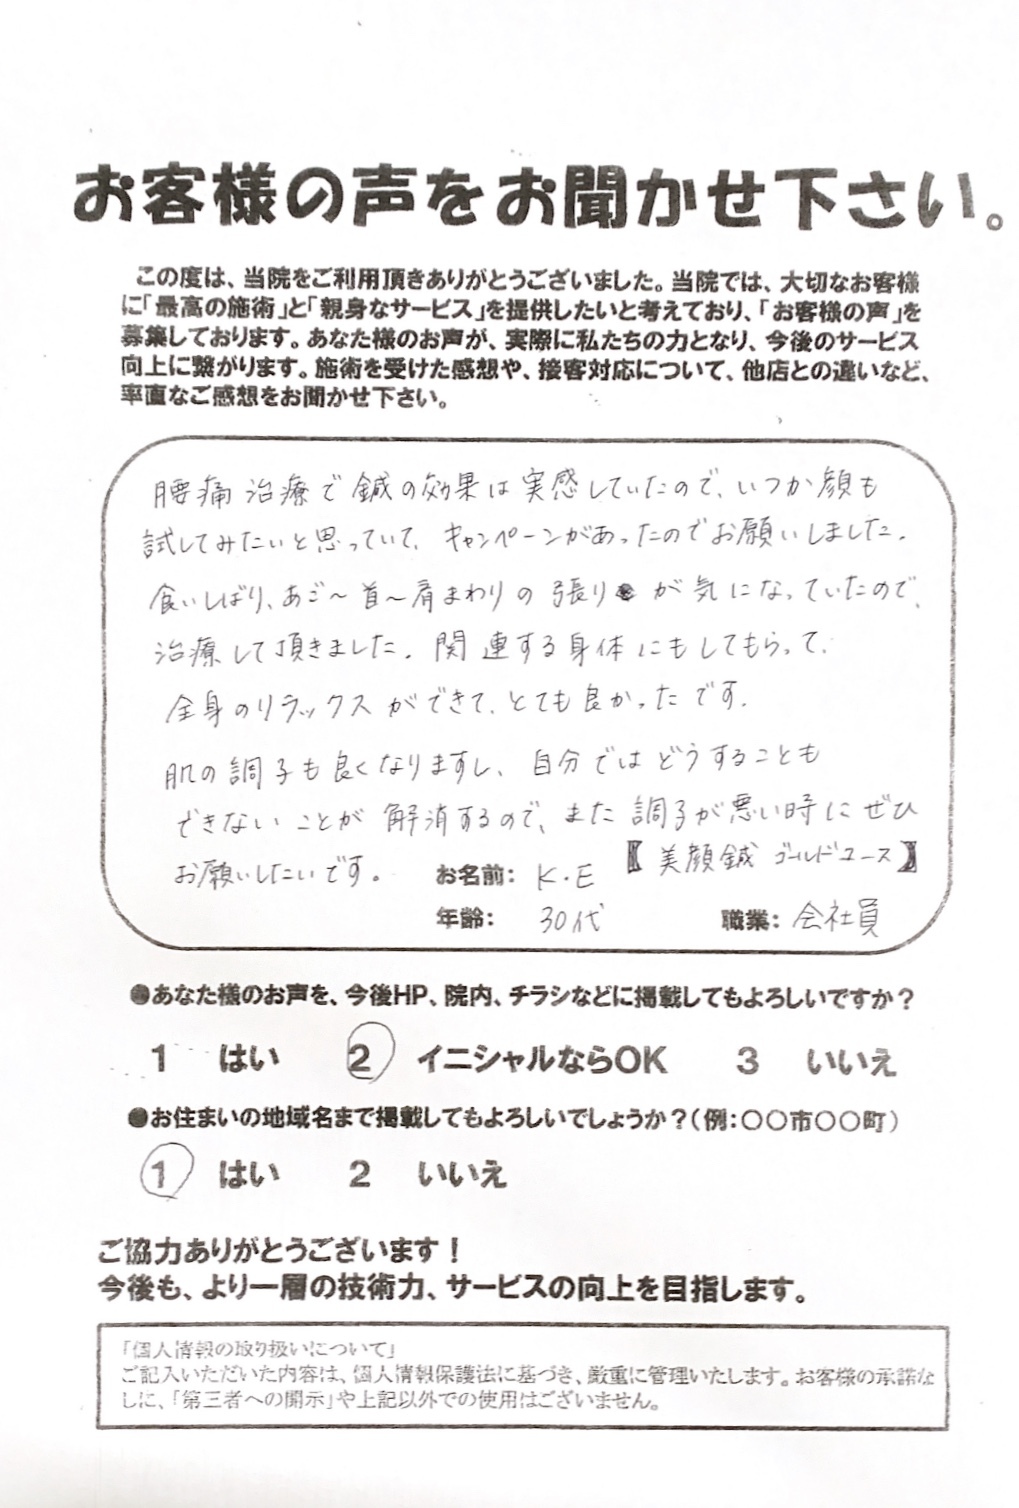 お客様の声をお聞かせ下さい。
この度は、当院をご利用頂きありがとうございました。当院では、大切なお客様
に「最高の施術」と「親身なサービス」を提供したいと考えており、「お客様の声」を
募集しております。あなた様のお声が、実際に私たちの力となり、今後のサービス
向上に繋がります。施術を受けた感想や、接客対応について、他店との違いなど、
率直なご感想をお聞かせ下さい。
腰痛治療で鍼の効果は実感していたので、いつか顔も
試してみたいと思っていて、キャンペーンがあったのでお願いしました。
食いしばり、あご〜首〜肩まわりの張りが気になっていたので、
治療して頂きました。関連する身体にもしてもらって、
全身のリラックスができて、とても良かったです。
肌の調子も良くなりますし、自分ではどうすることも
できないことが解消するので、また調子が悪い時にぜひ
お願いしたいです。
【美顔鍼 ゴールドコース】
お名前: K.E
年齢: 30代 職業: 会社員
●あなた様のお声を、今後HP、院内、チラシなどに掲載してもよろしいですか?
1 はい 2 イニシャルならOK 3 いいえ
●お住まいの地域名まで掲載してもよろしいでしょうか?(例:〇〇市〇〇町)
1 はい 2 いいえ
ご協力ありがとうございます!
今後も、より一層の技術力、サービスの向上を目指します。
「個人情報の取り扱いについて」
ご記入いただいた内容は、個人情報保護法に基づき、厳重に管理いたします。お客様の承諾な
しに、「第三者への開示」や上記以外での使用はございません。